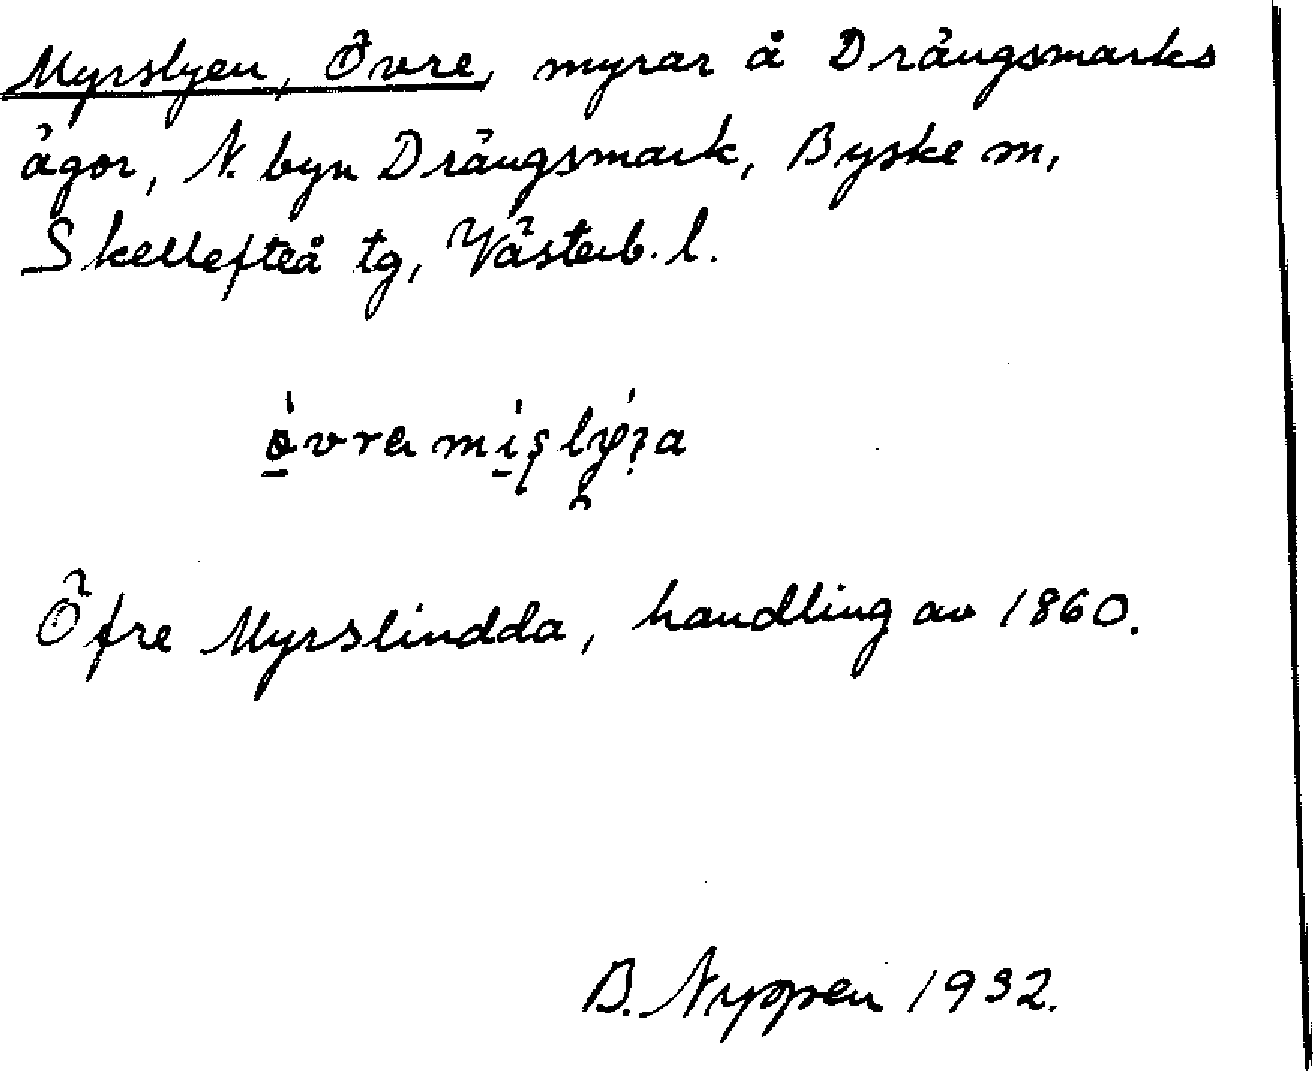 Myrslyen, Övre, myrar å Drängsmarks
ägor, N. byn Drängsmark, Byske m,
Skellefteå tg, Västerb. l.
Öfre Myrslindda, handling av 1860.
B. Nyppen 1932.